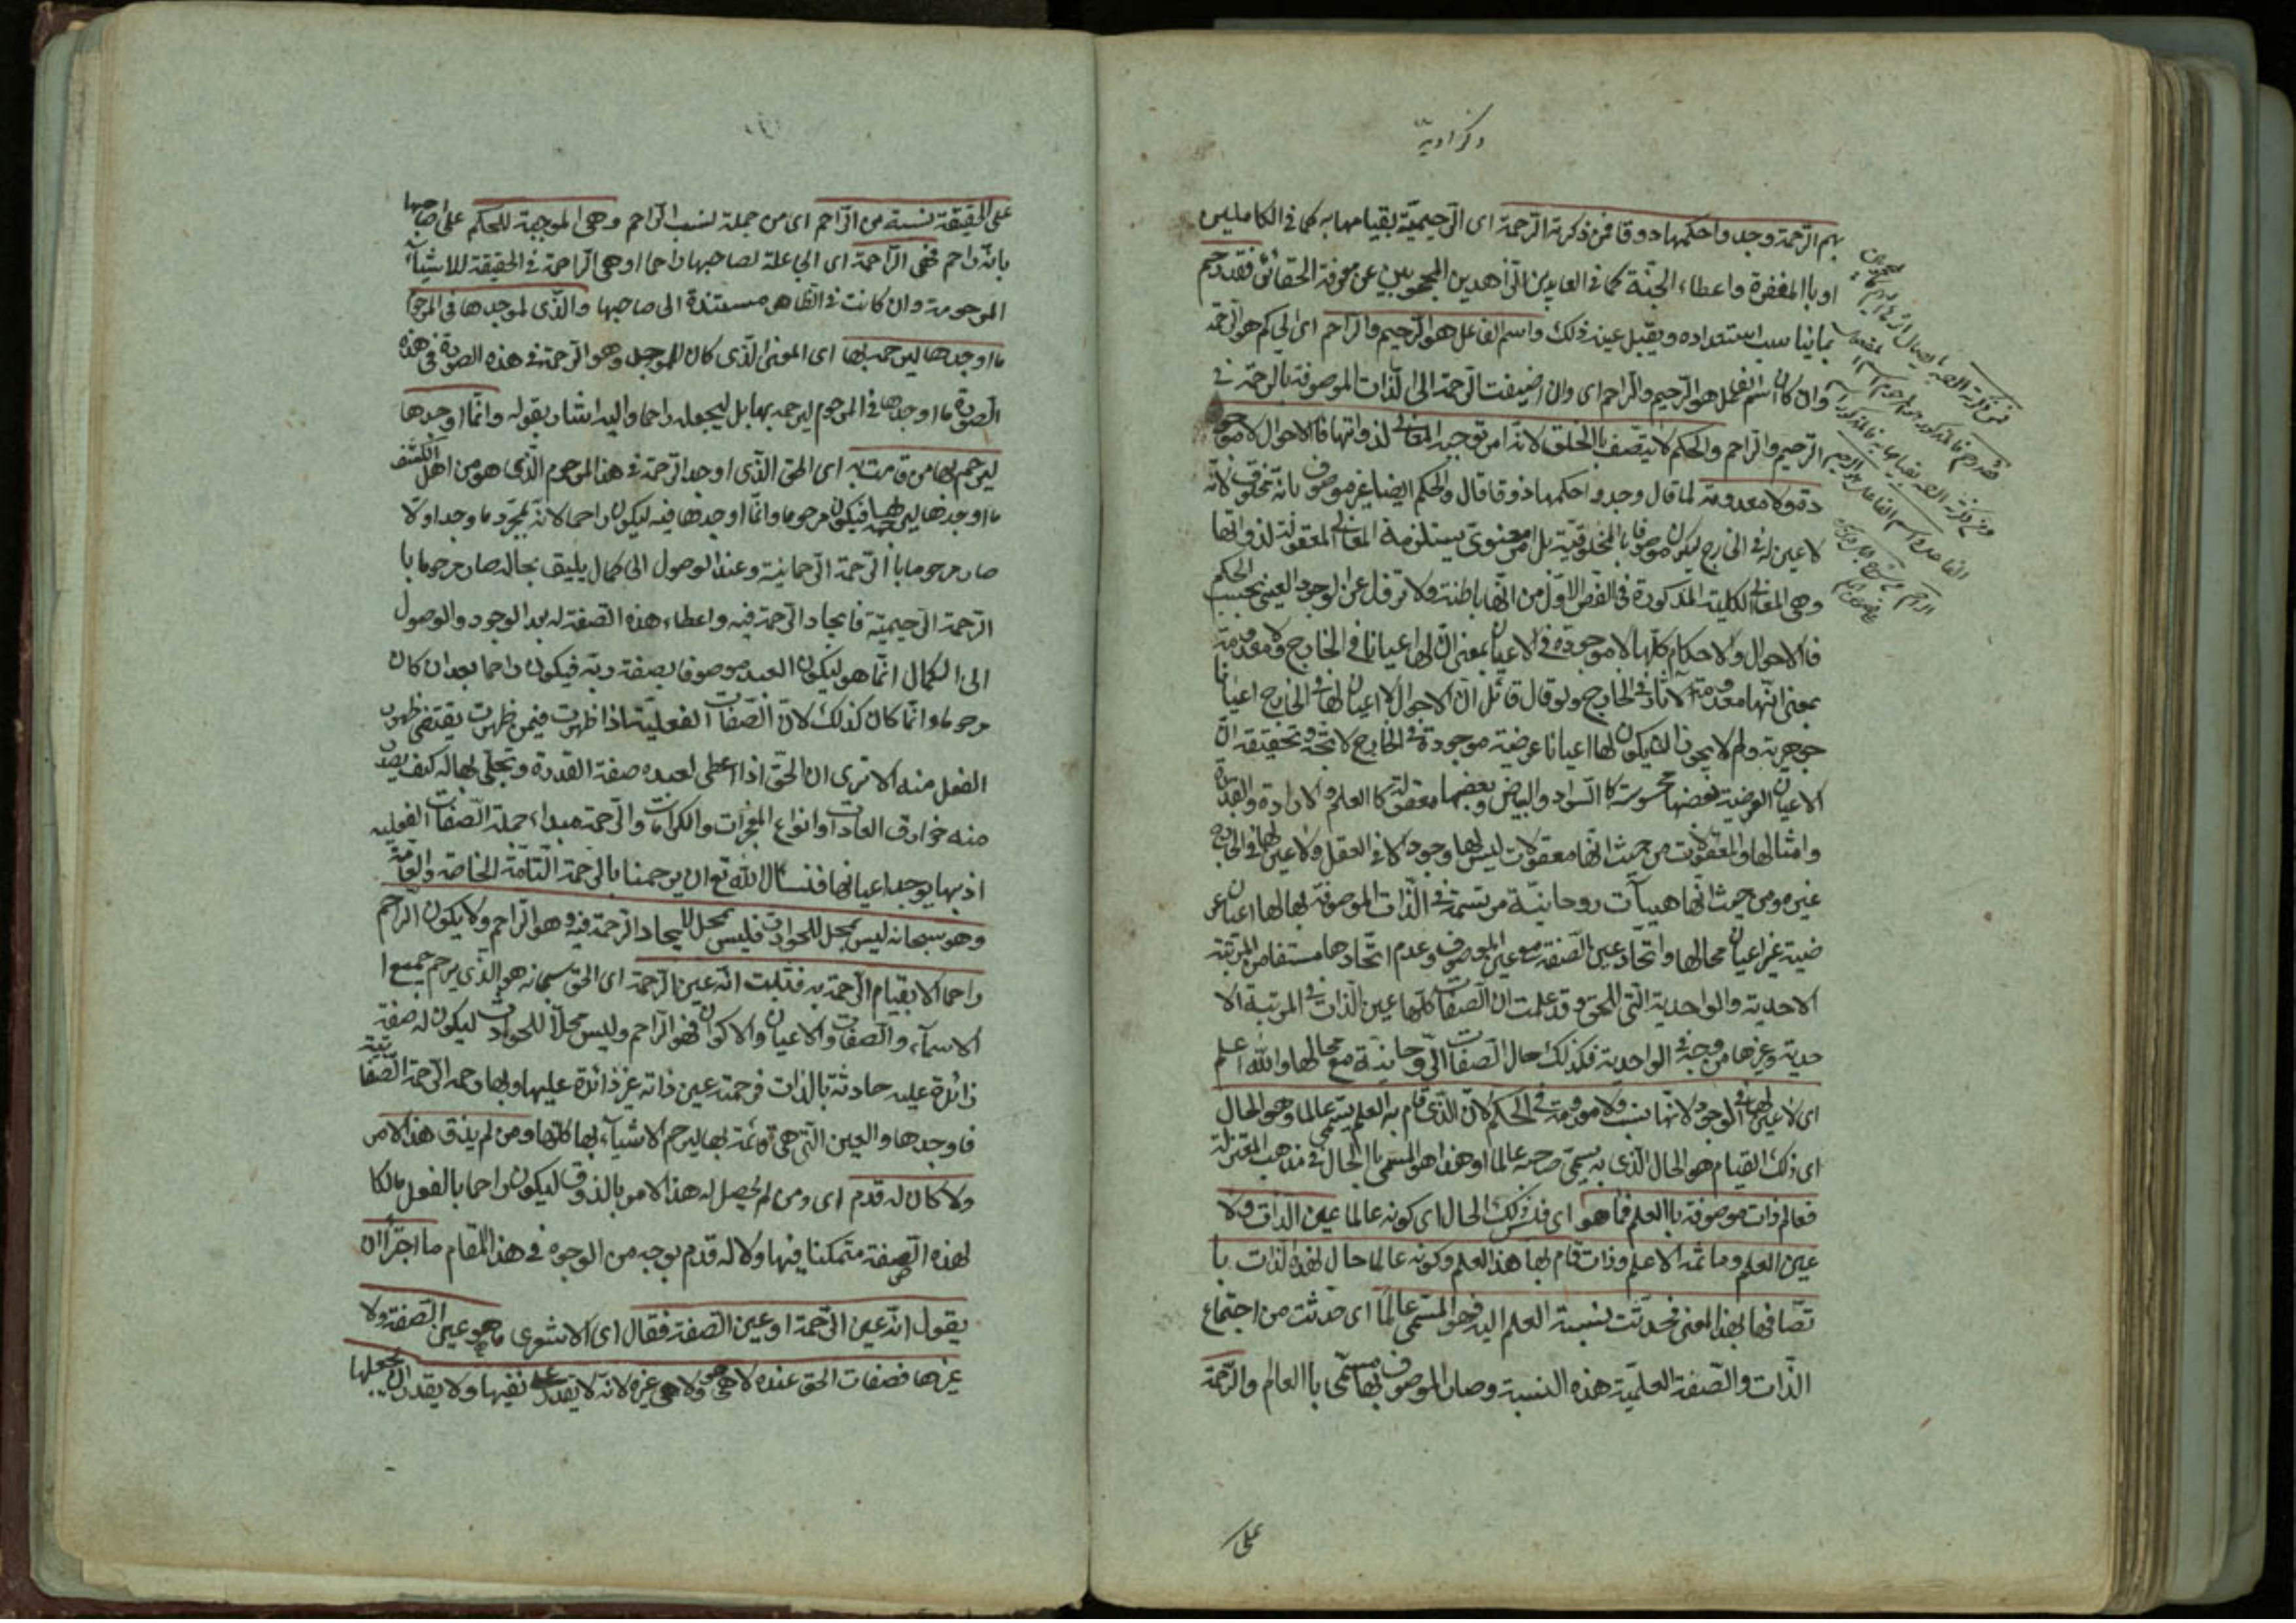 ذكراوية
بهم الرحمة وجدوا حكمها ذوقا فمن ذكرته الرحمة اى الرحيمية بقيامها به كما فى الكاملين
او باالمغفرة واعطاء الجنة كما فى العابدين الزاهدين المحجوبين عن معرفة الحقائق فقد رحم
بما يناسب استعداده ويقبل عينه ذلك واسم الفاعل هو الرحيم والراحم اى الحاكم هو الرحمة
وان كان اسم الفاعل هو الرحيم والراحم اى وان اضيفت الرحمة الى الذات الموصوفة بالرحمة فى
الرحيم والراحم والحكم لا يتصف باالخلق لانه امر توجبه المعانى لذواتها فالاحوال لا موجو
دة ولا معدومة لما قال وجدوا حكمها ذوقا قال والحكم ايضا غير موصوف بانه مخلوق لانه
لا عين له فى الخارج ليكون موصوفا باالمخلوقية بل امر معنوى يستلزمه المعانى المعقولة لذواتها
وهى المعانى الكلية المذكورة فى الفص الاول من انها باطنة ولا تزال عن الوجود العينى بحسب الحكم
فالاحوال والاحكام كلها لا موجودة فى الاعيان بمعنى ان لها اعيانا فى الخارج ولا معدومة
بمعنى انها معدومة الآثار فى الخارج ولو قال قائل ان الاحوال لا اعيان لها فى الخارج اعيانا
جوهرية ولم لا يجوز ان يكون لها اعيانا عرضية موجودة فى الخارج لا يتجه وتحقيقه ان
الاعيان العرضية بعضها محسوسة كا السواد والبياض وبعضها معقولة كا العلم والارادة والقدرة
وامثالها والمعقولات من حيث انها معقولات ليس لها وجود الا فى العقل ولا عين لها فى الخارج
غيره ومن حيث انها هيآت روحانية مرتسمة فى الذات الموصوفة بها لها اعيان عر
ضية غير اعيان محالها واتحاد عين الصفة مع عين الموصوف وعدم اتحادها مستفاد من المرتبة
الاحدية والواحدية التى للحق وقد علمت ان الصفات كلها عين الذات فى المرتبة الا
حدية وغيرها من وجه فى الواحدية فكذلك حال الصفات الروحانية مع محالها والله اعلم
اى لا عين لها فى الوجود لانها نسب ولا معدومة فى الحكم لان الذى قام به العلم يسمى عالما وهو الحال
اى ذلك القيام هو الحال الذى به يسمى صاحبه عالما وهذا هو المسمى باالحال فى مذهب المعتزلة
فعالم ذات موصوفة باالعلم فما هو اى فليس ذلك الحال اى كونه عالما عين الذات ولا
عين العلم وما ثمه الا علم وذات قام بها هذا العلم وكونه عالما حال لهذه الذات با
تصافها بهذا المعنى فحدثت نسبة العلم اليه فهو المسمى عالما اى حدثت من اجتماع
الذات والصفة العلمية هذه النسبة وصار الموصوف بها مسمى باالعالم والرحمة
على
على الحقيقة نسبة من الراحم اى من جملة نسب الراحم وهى الموجبة للحكم على صاحبها
بانه راحم فهى الراحمة اى الجاعلة لصاحبها راحما وهى الراحمة فى الحقيقة للاشيآء
المرحومة وان كانت فى الظاهر مستندة الى صاحبها والذى اوجدها فى المرحو
ما اوجدها ليرحمه بها اى المعنى الذى كان الموجد وهو الرحمة فى هذه الصورة فى هذه
الصورة ما اوجدها فى المرحوم ليرحمه بها بل ليجعله راحما واليه اشار بقوله وانما اوجدها
ليرحم بها من قامت به اى الحق الذى اوجد الرحمة فى هذا المرحوم الذى هو من اهل الكشف
ما اوجدها ليرحمه بها فيكون مرحوما وانما اوجدها فيه ليكون راحما لانه بمجرد ما وجد اولا
صار مرحوما باالرحمة الرحمانية وعند الوصول الى كمال يليق بحاله صار مرحوما با
الرحمة الرحيمية فايجاد الرحمة فيه واعطاء هذه الصفة له بعد الوجود والوصول
الى الكمال انما هو ليكون العبد موصوفا بصفة ربه فيكون راحما بعد ان كان
مرحوما وانما كان كذلك لان الصفات الفعلية اذا ظهرت فيمن ظهرت يقتضى ظهور
الفعل منه الا ترى ان الحق اذا اعطى لعبده صفة القدرة وتجلى بها له كيف يصدر
منه خوارق العادات وانواع المعجزات والكرامات والرحمة مبداء جملة الصفات الفعلية
اذ بها يوجد اعيانها فنسال الله تع ان يرحمنا باالرحمة التامة الخاصة والعامة
وهو سبحانه ليس بمحل للحوادث فليس بمحل لايجاد الرحمة فيه وهو الراحم ولا يكون الراحم
راحما الا بقيام الرحمة به فثبت انه عين الرحمة اى الحق سبحانه هو الذى يرحم جميع ا
الاسمآء والصفات والاعيان والاكوان فهو الراحم وليس محلا للحوادث ليكون له صفة
زائدة عليه حادثة بالذات فرحمته عين ذاته غير زائدة عليها وبها رحمه الرحمة الصفاتية
فاوجدها والعين التى هى قائمة بها ليرحم الاشيآء بها كلها ومن لم يذق هذا الامر
ولا كان له قدم اى ومن لم يحصل له هذا الامر بالذوق ليكون راحما بالفعل مالكا
لهذه الصفة متمكنا فيها ولا له قدم بوجه من الوجوه فى هذا المقام ما اجترأ ان
يقول انه عين الرحمة او عين الصفة فقال اى الاشعرى ما هو عين الصفة ولا
غيرها فصفات الحق عنده لا هى هو ولا هى غيره لانه لا يقدر على نفيها ولا يقدر ان يجعلها